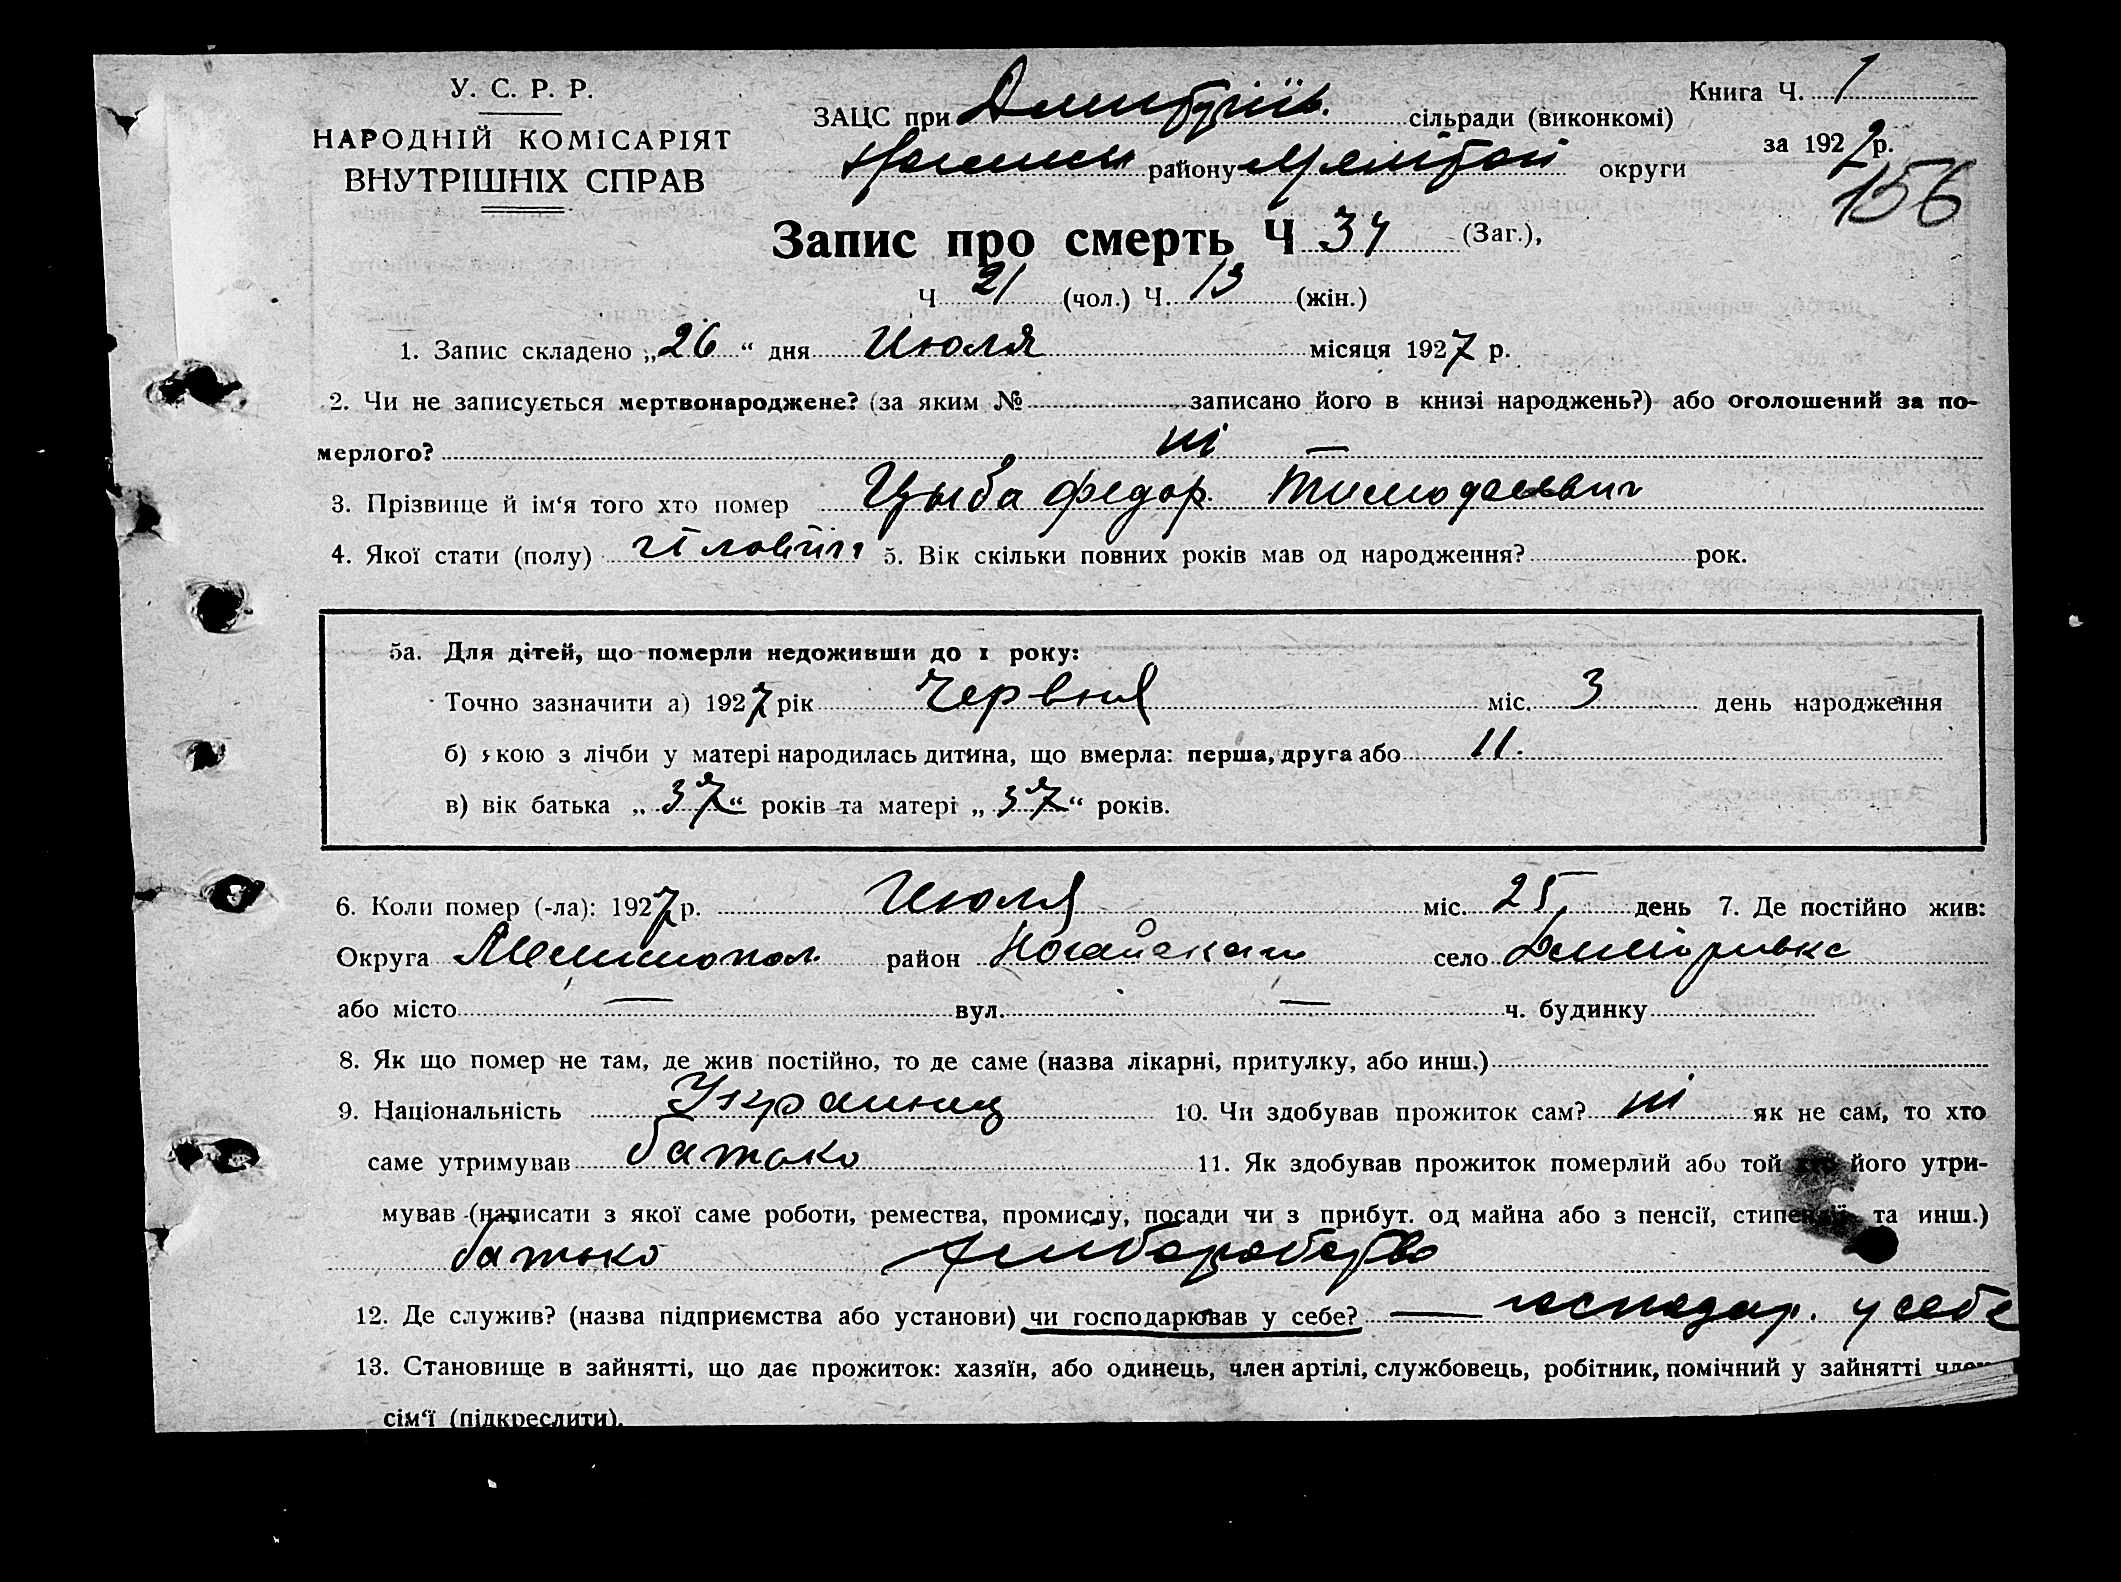 У. С. Р. Р.
НАРОДНІЙ КОМІСАРІЯТ
ВНУТРІШНІХ СПРАВ
Книга Ч. 1
за 1927 р.
156
ЗАЦС при сільради (виконкомі)
району округи
Запис про смерть Ч 34 (Заг.),
Ч 21 (чол.) Ч. 13 (жін.)
1. Запис складено „26“ дня Июля місяця 1927 р.
2. Чи не записується мертвонароджене? (за яким № записано його в книзі народжень?) або оголошений за по-
мерлого? ні —
3. Прізвище й ім‘я того хто помер Цыба Федор Тимофеевич
4. Якої стати (полу) 5. Вік скільки повних років мав од народження? рок.
5а. Для дітей, що померли недоживши до 1 року:
Точно зазначити а) 1927 рік Червня міс. 3 день народження
б) якою з лічби у матері народилась дитина, що вмерла: перша, друга або 11.
в) вік батька „37“ років та матері „37“ років.
6. Коли помер (-ла): 1927 р. Июля міс. 25 день 7. Де постійно жив:
Округа Мелитопол район Ногайском село
або місто — вул. — ч. будинку
8. Як що помер не там, де жив постійно, то де саме (назва лікарні, притулку, або инш.)
9. Національність Украинец 10. Чи здобував прожиток сам? ні як не сам, то хто
саме утримував батько 11. Як здобував прожиток померлий або той хто його утри-
мував (написати з якої саме роботи, ремества, промислу, посади чи з прибут. од майна або з пенсії, стипендії, та инш.)
батько хліборобство
12. Де служив? (назва підприємства або установи) чи господарював у себе? — господар. у себе
13. Становище в зайнятті, що дає прожиток: хазяїн, або одинець, член артілі, службовець, робітник, помічний у зайнятті член
сім‘ї (підкреслити).